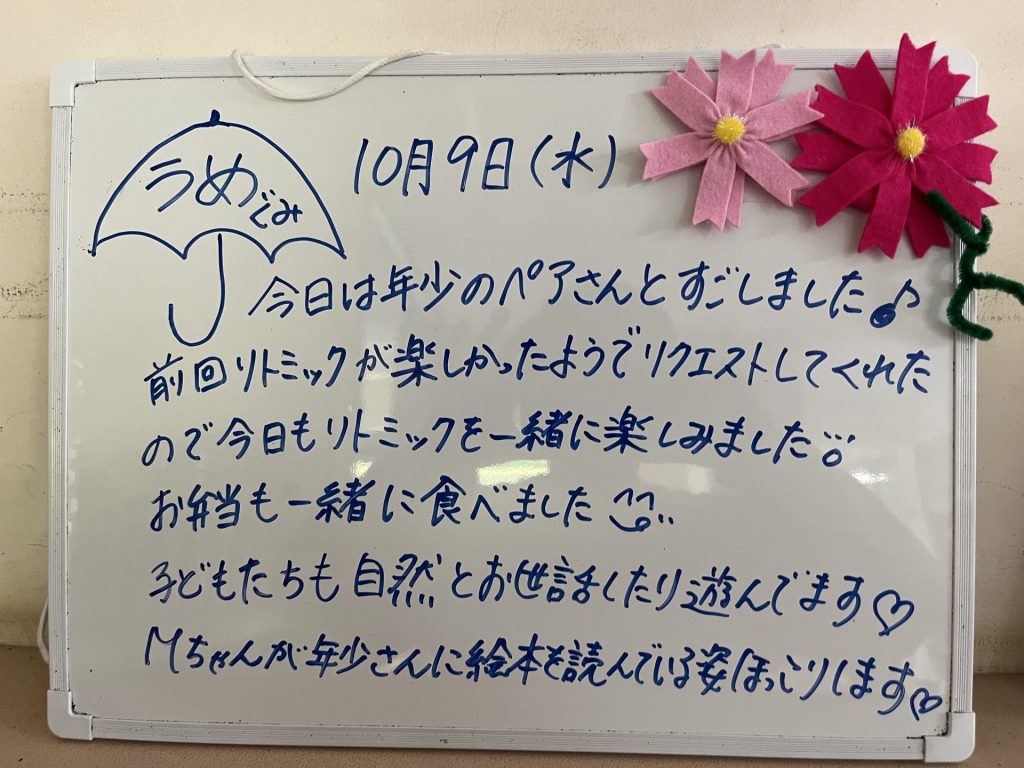 うめぐみ
10月9日(水)
今日は年少のペアさんとすごしました♪
前回リトミックが楽しかったようでリクエストしてくれた
ので今日もリトミックを一緒に楽しみました
お弁当も一緒に食べました
子どもたちも自然とお世話したり遊んでます♡
Mちゃんが年少さんに絵本を読んでいる姿ほっこりします♡